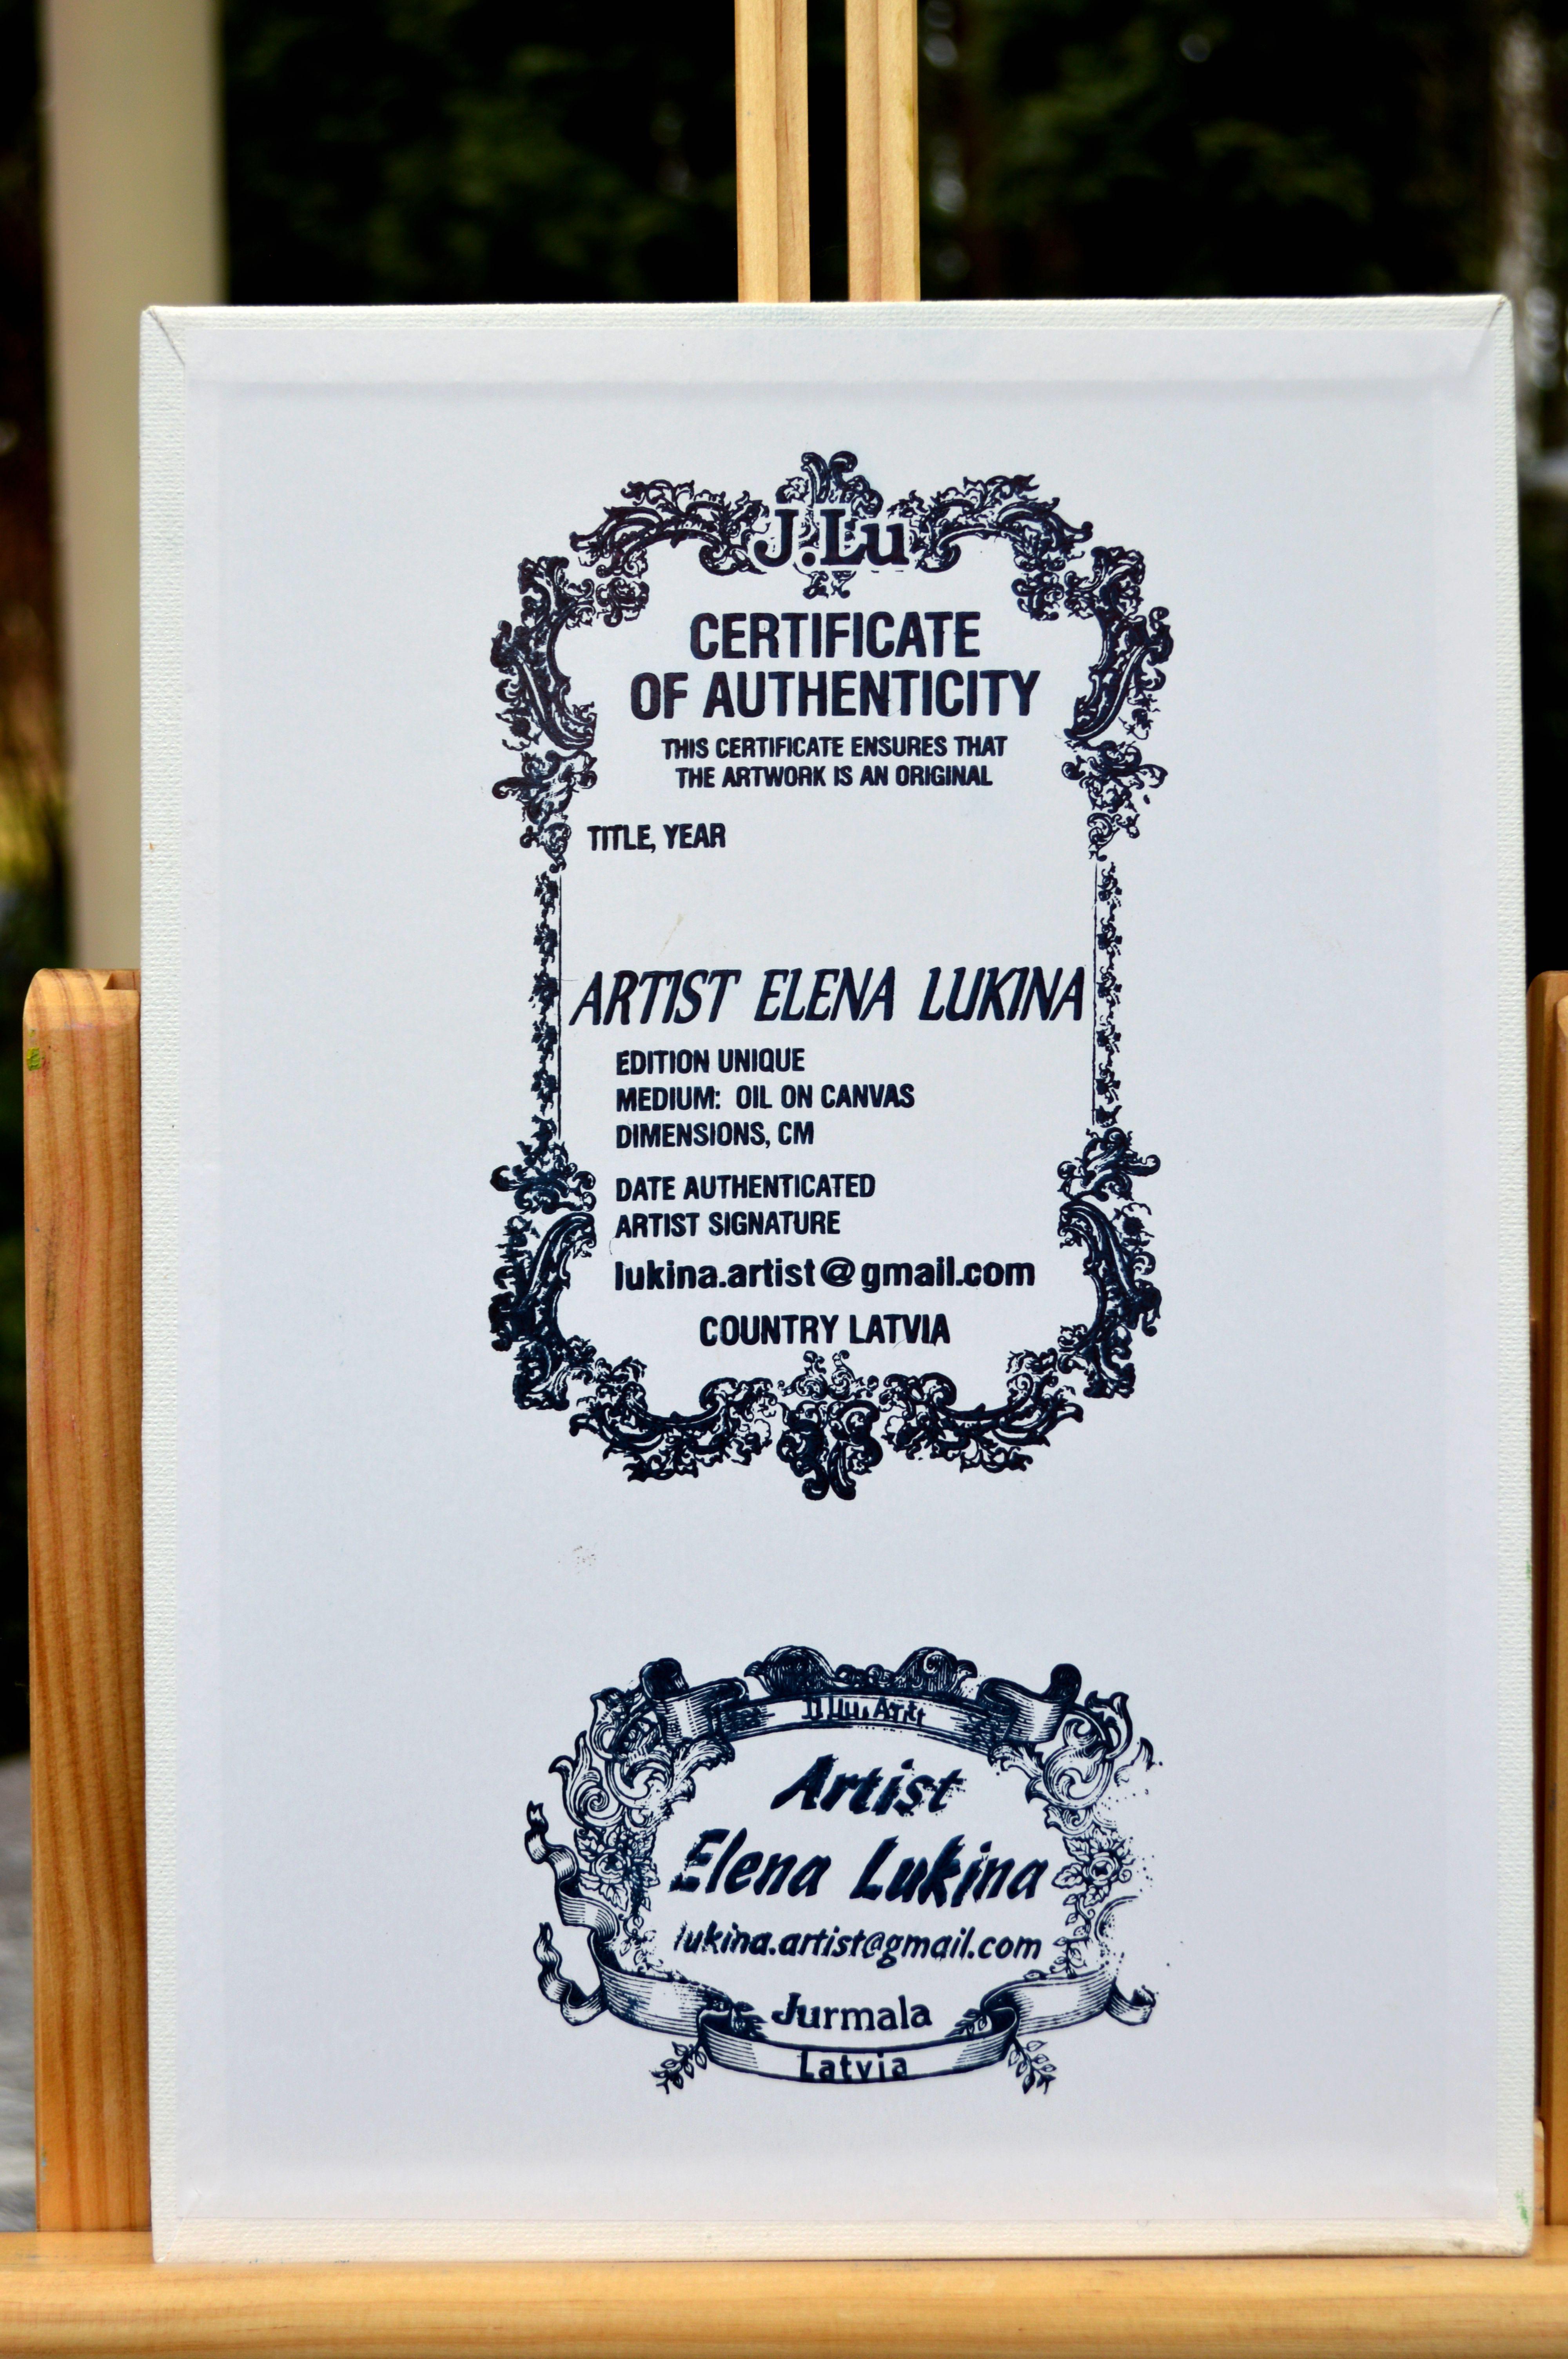 J.Lu
CERTIFICATE
OF AUTHENTICITY
THIS CERTIFICATE ENSURES THAT
THE ARTWORK IS AN ORIGINAL
TITLE, YEAR
ARTIST ELENA LUKINA
EDITION UNIQUE
MEDIUM: OIL ON CANVAS
DIMENSIONS, CM
DATE AUTHENTICATED
ARTIST SIGNATURE
lukina.artist@gmail.com
COUNTRY LATVIA
Artist
Elena Lukina
lukina.artist@gmail.com
Jurmala
Latvia